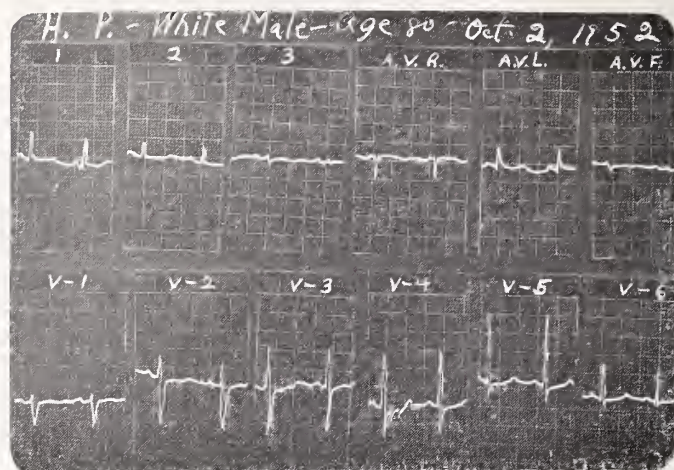 H. P. - White Male - age 80 - Oct. 2, 1952
1 2 3 A.V.R. A.V.L. A.V.F.
V-1 V-2 V-3 V-4 V-5 V-6